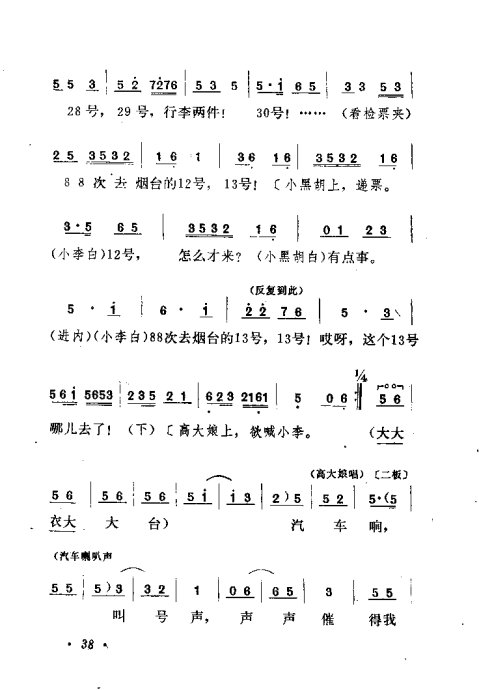 5 5 3 | 5 2 7276 | 5 3 5 | 5·i 6 5 | 3 3 5 3 |
28号，29号，行李两件！ 30号！……（看检票夹）
2 5 3532 | 1 6 1 | 3 6 1 6 | 3532 1 6 |
88次去烟台的12号，13号！〔小黑胡上，递票。
3·5 6 5 | 3532 1 6 | 0 1 2 3 |
(小李白)12号， 怎么才来？(小黑胡白)有点事。
（反复到此）
5 · i | 6 · i | 2 2 7 6 | 5 · 3 |
(进内)(小李白)88次去烟台的13号，13号！哎呀，这个13号
1/4
5 6 i 5653 | 2 3 5 2 1 | 6 2 3 2161 | 5 0 6 :‖ 5 6 |
哪儿去了！（下）〔高大娘上，欲喊小李。 （大大
（高大娘唱）〔二板〕
5 6 | 5 6 | 5 6 | 5 i | i 3 | 2 ) 5 | 5 2 | 5·(5 |
衣大 大 台） 汽 车 响，
（汽车喇叭声
5 5 | 5 ) 3 | 3 2 | 1 | 0 6 | 6 5 | 3 | 5 5 |
叫 号 声， 声 声 催 得我
· 38 ·